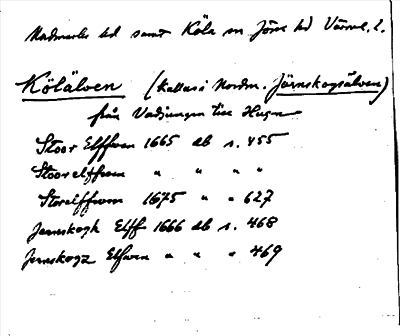 Nordmarks hd samt Köla sn Jösse hd Värml. l.
Kölälven (kallas i Nordm. Järnskogsälven)
från Vadjungen till Hugn
Stoor Elffwen 1665 ab s. 455
Stoorelfwen " " " "
Storelffwen 1675 " " 627
Jernskogh Elff 1666 ab s. 468
Jernskogz Elfwen " " " 469